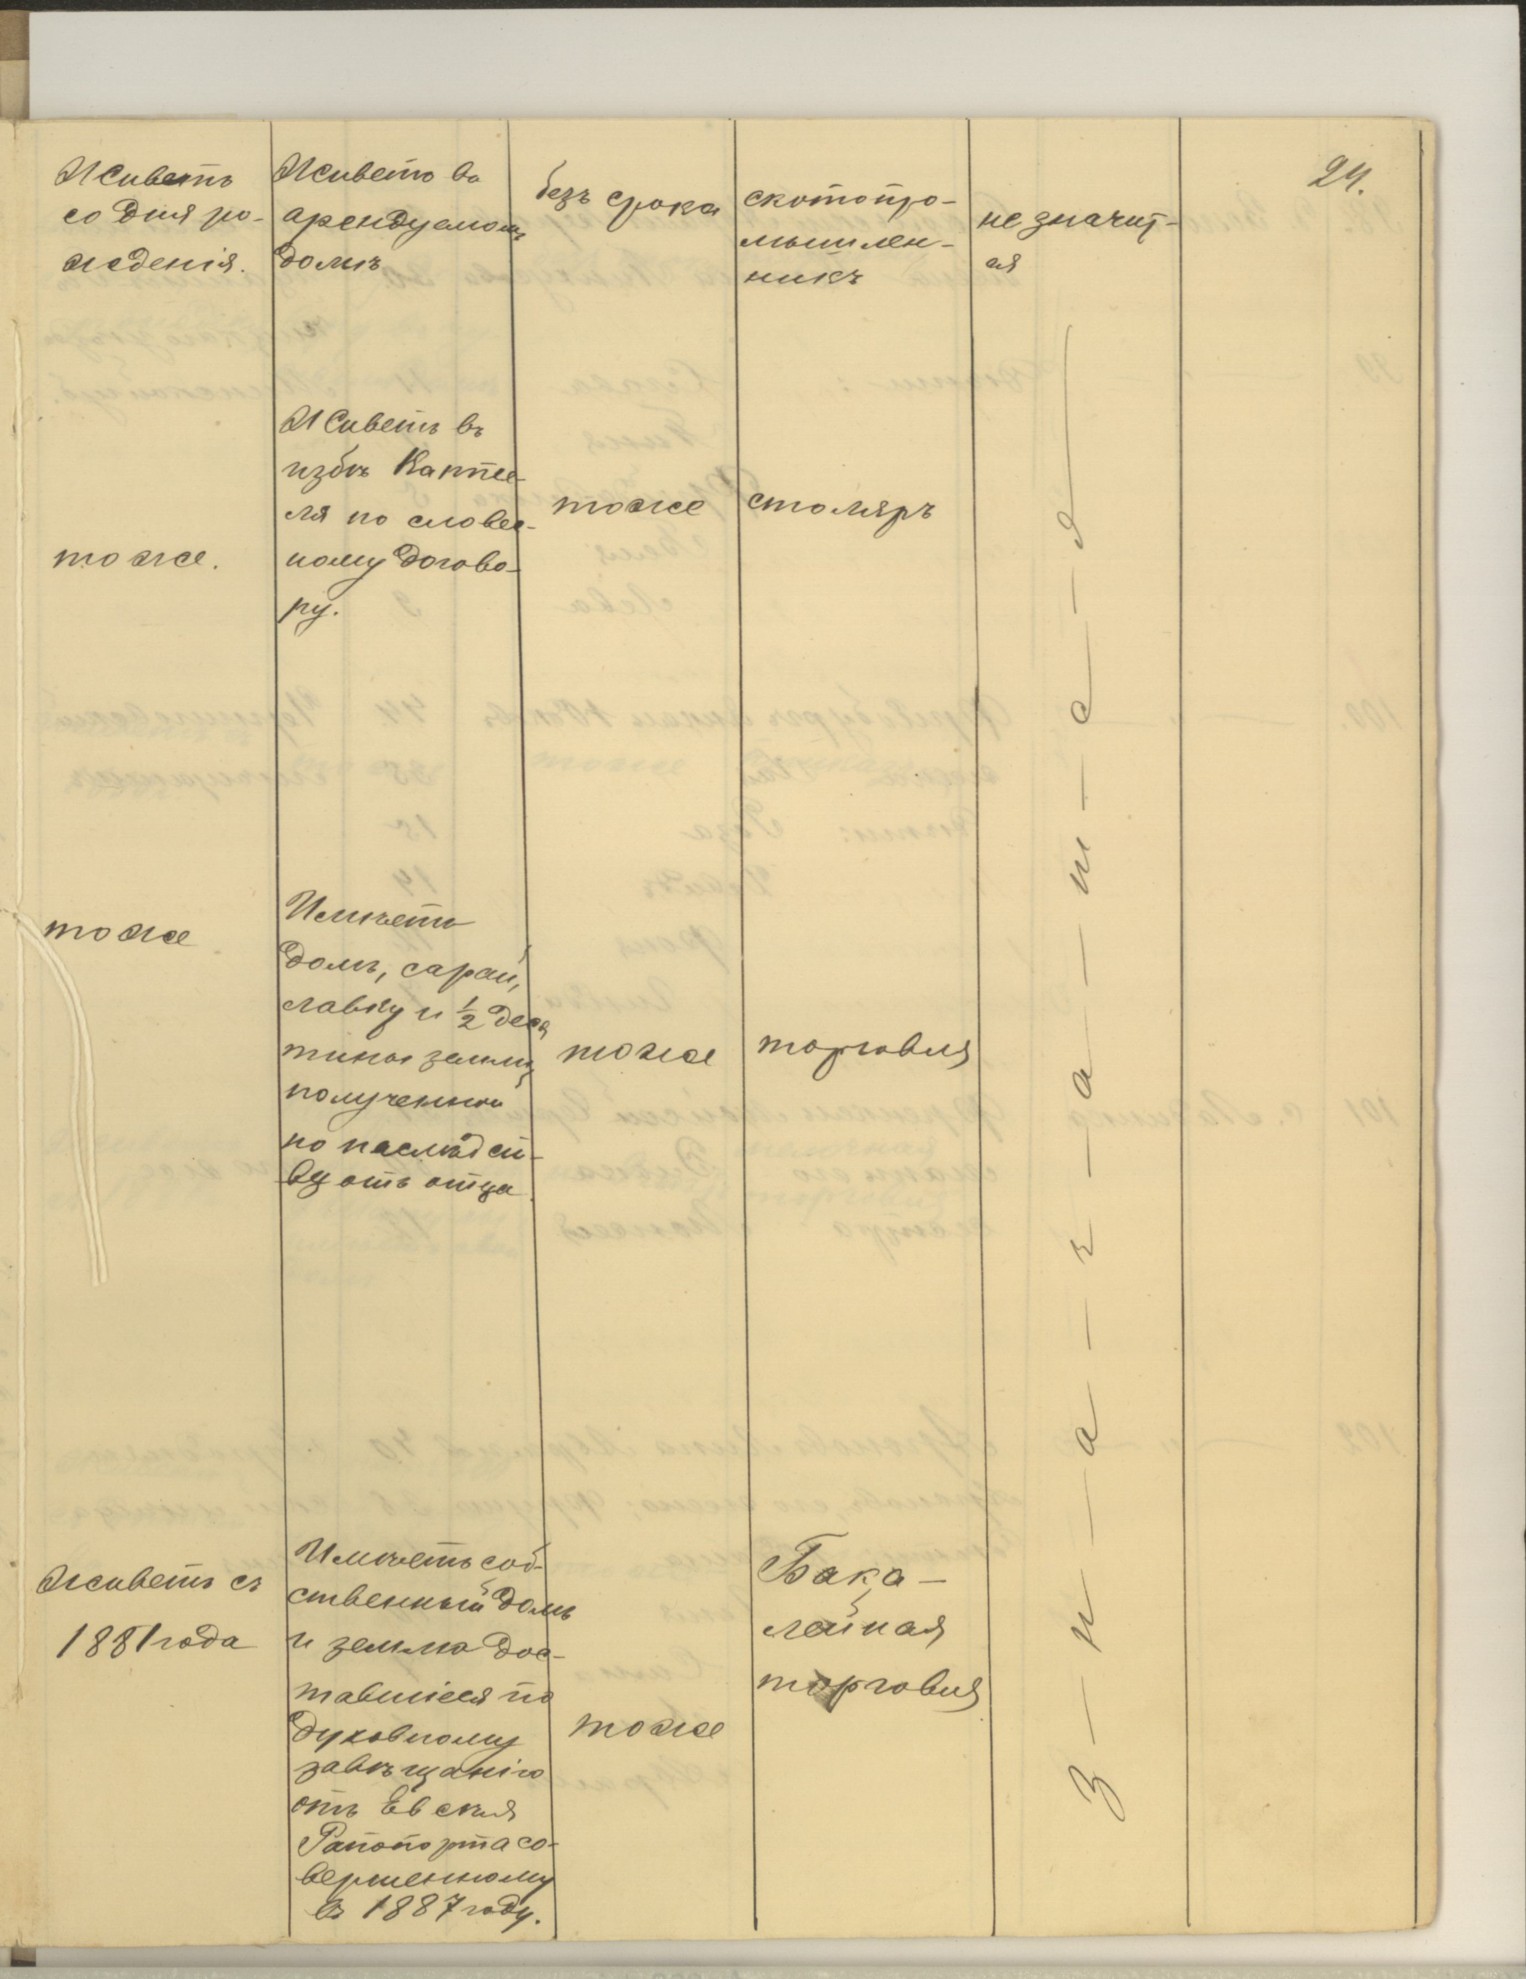 24.
Живетъ
со дня ро-
жденія.
Живетъ въ
арендуемомъ
домѣ
безъ срока
скотопро-
мышлен-
никъ
не значит-
ся
тоже.
Живетъ въ
избѣ Каппе-
ля по словес-
ному догово-
ру.
тоже
столяръ
тоже
Имѣетъ
домъ, сарай,
лавку и ½ деся
тины земли,
полученной
по наслѣдст-
ву отъ отца
тоже
торговля
Живетъ съ
1881 года
Имѣетъ соб-
ственный домъ
и землю дос-
тавшіеся по
духовному
завѣщанію
отъ Евселя
Рапопорта со-
вершенному
въ 1887 году.
тоже
Бака-
лейная
торговля
З-н-а-ч-а-т-с-я